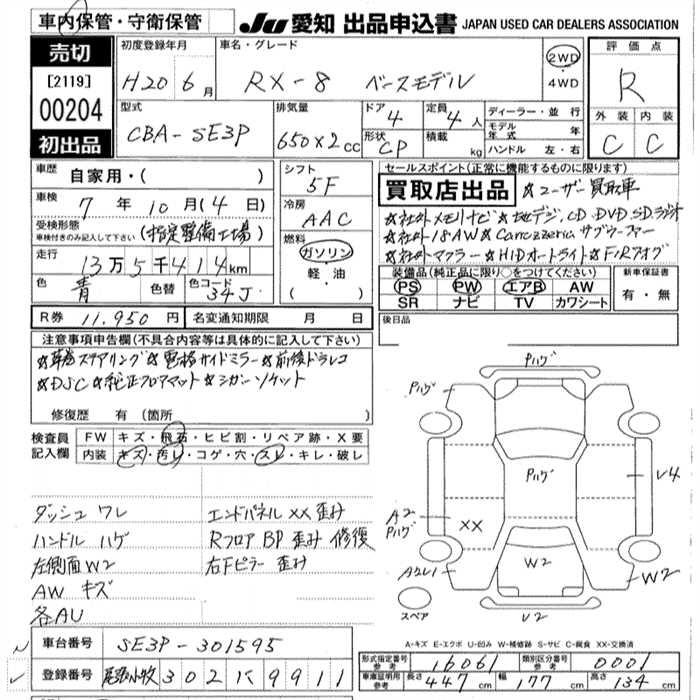 車内保管・守衛保管
JU 愛知 出品申込書 JAPAN USED CAR DEALERS ASSOCIATION
売切
[2119]
00204
初出品
初度登録年月
H20年6月
車名・グレード
RX-8 ベースモデル
2WD
・
4WD
評価点
R
外装 内装
C C
型式
CBA-SE3P
排気量
650×2cc
ドア
4
定員
4人
形状
CP
積載
kg
ディーラー・並行
モデル年式 年
ハンドル 左・右
車歴
自家用・( )
車検
7年10月(4日)
受検形態
車検付きのみ記入して下さい
(指定整備工場)
走行
13万5千414km
色
青
色替
色コード
34J
シフト
5F
冷房
AAC
燃料
ガソリン
・
軽・油
( )
セールスポイント(正常に機能するものに限ります)
買取店出品 ★ユーザー買取車
★社外メモリナビ★地デジ,CD,DVD,SDラジオ
★社外18AW★Carrozzeriaサブウーファー
★社外マフラー★HIDオートライト★F/Rフォグ
装備品(純正品に限り○をつけてください)
PS PW エアB AW
SR ナビ TV カワシート
新車保証書
有・無
R券 11,950円
名変通知期限 月 日
後日品
注意事項申告欄(不具合内容等は具体的に記入して下さい)
★革巻ステアリング★電格サイドミラー★前後ドラレコ
★DSC★純正フロアマット★シガーソケット
修復歴 有(箇所 )
検査員
記入欄
FW キズ・飛石・ヒビ割・リペア跡・X要
内装 キズ・汚レ・コゲ・穴・スレ・キレ・破レ
ダッシュ ワレ
ハンドル ハゲ
左側面 W2
AW キズ
各AU
エンドパネル XX 歪み
Rフロア BP 歪み 修復
右Fピラー 歪み
Pハゲ
Pハゲ
Pハゲ
A2
Pハゲ
XX
V4
A2U1
W2
W2
V2
スペア
A-キズ E-エクボ U-凹み W-補修跡 S-サビ C-腐食 XX-交換済
車台番号 SE3P-301595
登録番号 尾張小牧 302 に 9911
形式指定番号
参考
16061
類別区分番号
参考
0001
車庫証明用
参考
長さ 447cm 幅 177cm 高さ 134cm